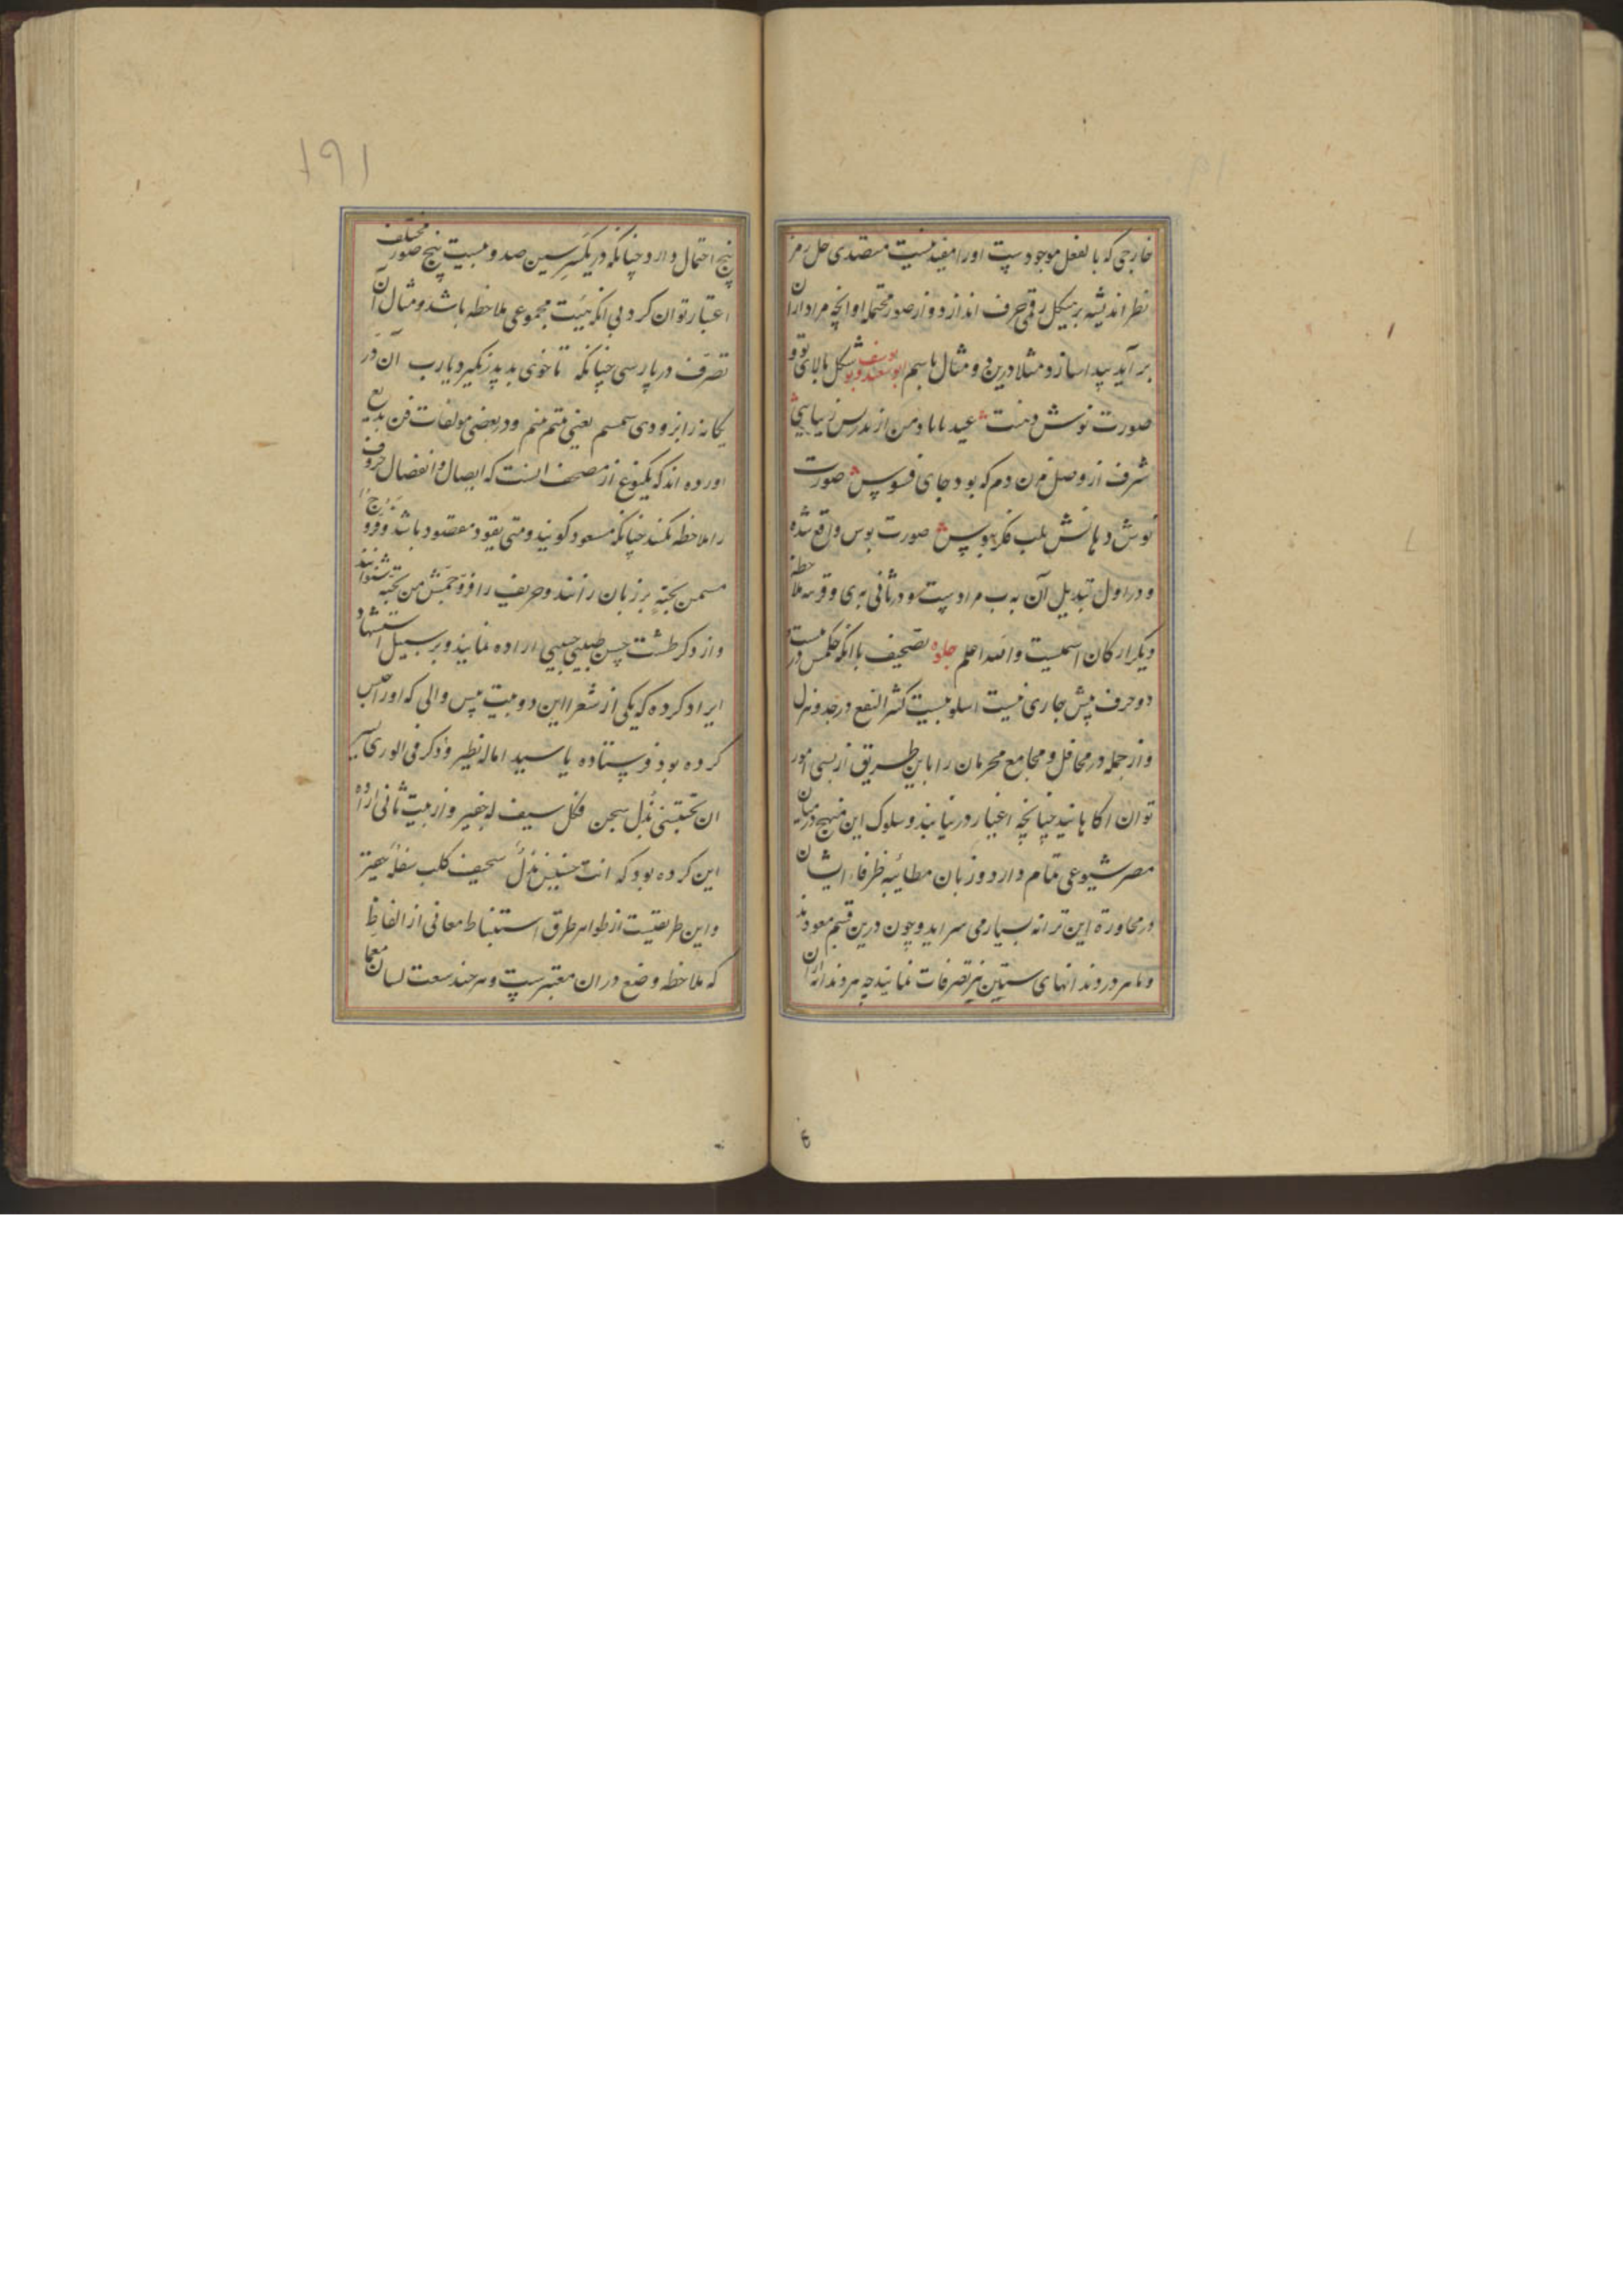 خارجی که بالفعل موجودست اورا مفید نیست متصدی حل رمز
نظر اندیشه بر هیکل رقمی حرف اندازد و از صور محتمله او انچه مراد ازان
بر آید پیدا سازد مثلا درین دو مثال باسم ابو سعید و یوسف شکل بالای تو و
صورت نوش دهنت عید بابا و من از زیبایی
شرف از وصل من دم که بود جای فسوس صورت
نوش دهانش بلب فکر ببوس صورت بوس واقع شده
و در اول تبدیل آن به ب مرادست و در ثانی بری و قرینه ملاحظه
دیگر ارکان اسمیست والله اعلم جلوه تصحیف با انکه حکمش در
دو حرف پیش جاری نیست اسلوبیست کثیر النفع در جد و هزل
و از جمله در محافل و مجامع محرمان را باین طریق از بسی امور
توان اکاهانید چنانچه اغیار در نیابند و سلوک این منهج در میان
مصر شیوعی تمام دارد و زبان مطائبه ظرفاء ایشان
در محاورة این ترانه بسیار می سراید و چون درین قسم معودند
و ماهر در روند انهای ستین نیز تصرفات نمایند چه هر دندانه ازان
۱۹۱
پنج احتمال دارد چنانکه در یک سر سین صد و بیست پنج صور مختلف
اعتبار توان کرد بی انکه هیئت مجموعی ملاحظه باشد و مثال آن
تصرف در پارسی چنانکه تا خوی بد پدر نکیرد یارب آن در
یکانه را بزودی سمسم یعنی متم منم و در بعضی مولفات فن بدیع
اورده اند که یکنوع از مصحف انست که اتصال و انفصال حروف
را ملاحظه نکنند چنانکه مسعود کویند و متی یعود مقصود باشد و
مسمن بجنة بر زبان رانند و حریف را من تحبه شنوانند
و از ذکر طشت حسن طبیبی حبیبی اراده نمایند و بر سبیل استشهاد
ایراد کرده که یکی از شعرا این دو بیت پیس والی که او را حبس
کرده بود فرستاده یا سیدا ماله نظیر و ذکره فی الوری یسیر
ان تحبسنی بذل سجن فکل سیف له جفیر و از بیت ثانی اراده
این کرده بود که انت خسیس نذل سخیف کلب سفله حقیر
و این طریقیست از ظواهر طرق استنباط معانی از الفاظ
که ملاحظه وضع دران معتبرست و هر چند سعت لسان معما